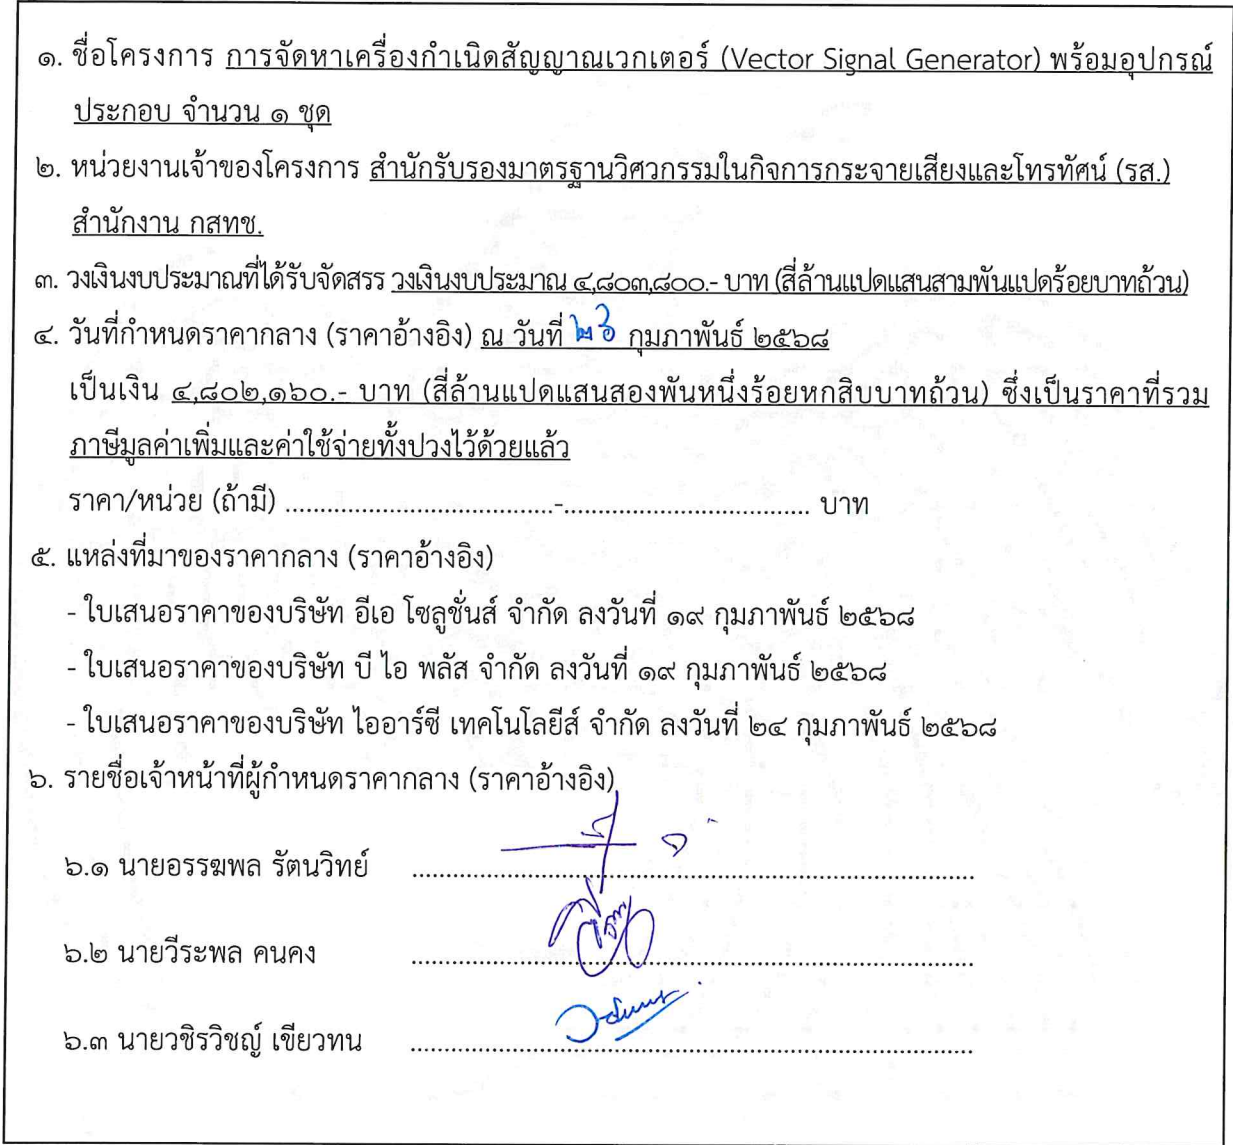 ๑. ชื่อโครงการ การจัดหาเครื่องกำเนิดสัญญาณเวกเตอร์ (Vector Signal Generator) พร้อมอุปกรณ์
ประกอบ จำนวน ๑ ชุด
๒. หน่วยงานเจ้าของโครงการ สำนักรับรองมาตรฐานวิศวกรรมในกิจการกระจายเสียงและโทรทัศน์ (รส.)
สำนักงาน กสทช.
๓. วงเงินงบประมาณที่ได้รับจัดสรร วงเงินงบประมาณ ๔,๘๐๓,๘๐๐.- บาท (สี่ล้านแปดแสนสามพันแปดร้อยบาทถ้วน)
๔. วันที่กำหนดราคากลาง (ราคาอ้างอิง) ณ วันที่ ๒๖ กุมภาพันธ์ ๒๕๖๘
เป็นเงิน ๔,๘๐๒,๑๖๐.- บาท (สี่ล้านแปดแสนสองพันหนึ่งร้อยหกสิบบาทถ้วน) ซึ่งเป็นราคาที่รวม
ภาษีมูลค่าเพิ่มและค่าใช้จ่ายทั้งปวงไว้ด้วยแล้ว
ราคา/หน่วย (ถ้ามี) ....................................-................................. บาท
๕. แหล่งที่มาของราคากลาง (ราคาอ้างอิง)
- ใบเสนอราคาของบริษัท อีเอ โซลูชั่นส์ จำกัด ลงวันที่ ๑๙ กุมภาพันธ์ ๒๕๖๘
- ใบเสนอราคาของบริษัท บี ไอ พลัส จำกัด ลงวันที่ ๑๙ กุมภาพันธ์ ๒๕๖๘
- ใบเสนอราคาของบริษัท ไออาร์ซี เทคโนโลยีส์ จำกัด ลงวันที่ ๒๔ กุมภาพันธ์ ๒๕๖๘
๖. รายชื่อเจ้าหน้าที่ผู้กำหนดราคากลาง (ราคาอ้างอิง)
๖.๑ นายอรรฆพล รัตนวิทย์ ............................................................................
๖.๒ นายวีระพล คนคง ............................................................................
๖.๓ นายวชิรวิชญ์ เขียวทน ............................................................................